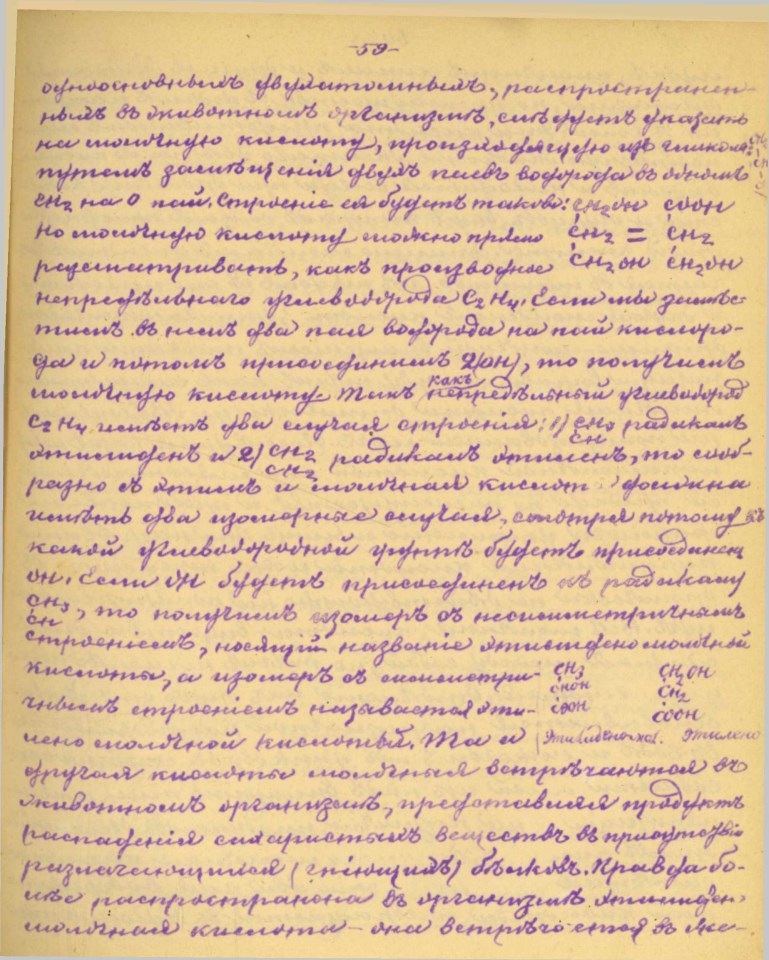 -59-
одноосновныхъ двухатомныхъ, распространен-
ныхъ въ животномъ организмѣ, слѣдуетъ указать
на молочную кислоту, производящуюся изъ гликоля
путемъ замѣщенія двухъ паевъ водорода въ одномъ
CH2 на O пай. Строеніе ея будетъ таково: CH2OH COOH
Но молочную кислоту можно прямо CH2 = CH2
разсматривать, какъ производное CH2OH CH2OH
непредѣльнаго углеводорода C2H4. Если мы замѣс-
тимъ въ немъ два пая водорода на пай кислоро-
да и потомъ присоединимъ 2(OH), то получимъ
молочную кислоту. Такъ какъ непредѣльный углеводород
C2H4 имѣетъ два случая строенія: 1) CH3 радикалъ
CH
этилиденъ и 2) CH2 радикалъ этиленъ, то сооб-
CH2
разно съ этимъ и молочная кислот должна
имѣть два изомерные случая, смотря потому къ
какой углеводородной группѣ будетъ присоединен
OH. Если OH будетъ присоединенъ къ радикалу
CH3, то получимъ изомеръ съ несимметричнымъ
CH
строеніемъ, носящій названіе этилиденомолочной
кислоты, а изомеръ съ симметри- CH3 CH2OH
CHOH CH2
чнымъ строеніемъ называется эти- COOH COOH
лено молочной кислотой. Та и этилено
другая кислоты молочныя встрѣчаются въ
животномъ организмѣ, представляя продуктъ
распаденія сахаристыхъ веществъ въ присутствіи
разлагающихся (гніющихъ) бѣлковъ. Правда бо-
лѣе распространена въ организмѣ этилиден
молочная кислота – она встрѣчается въ же-